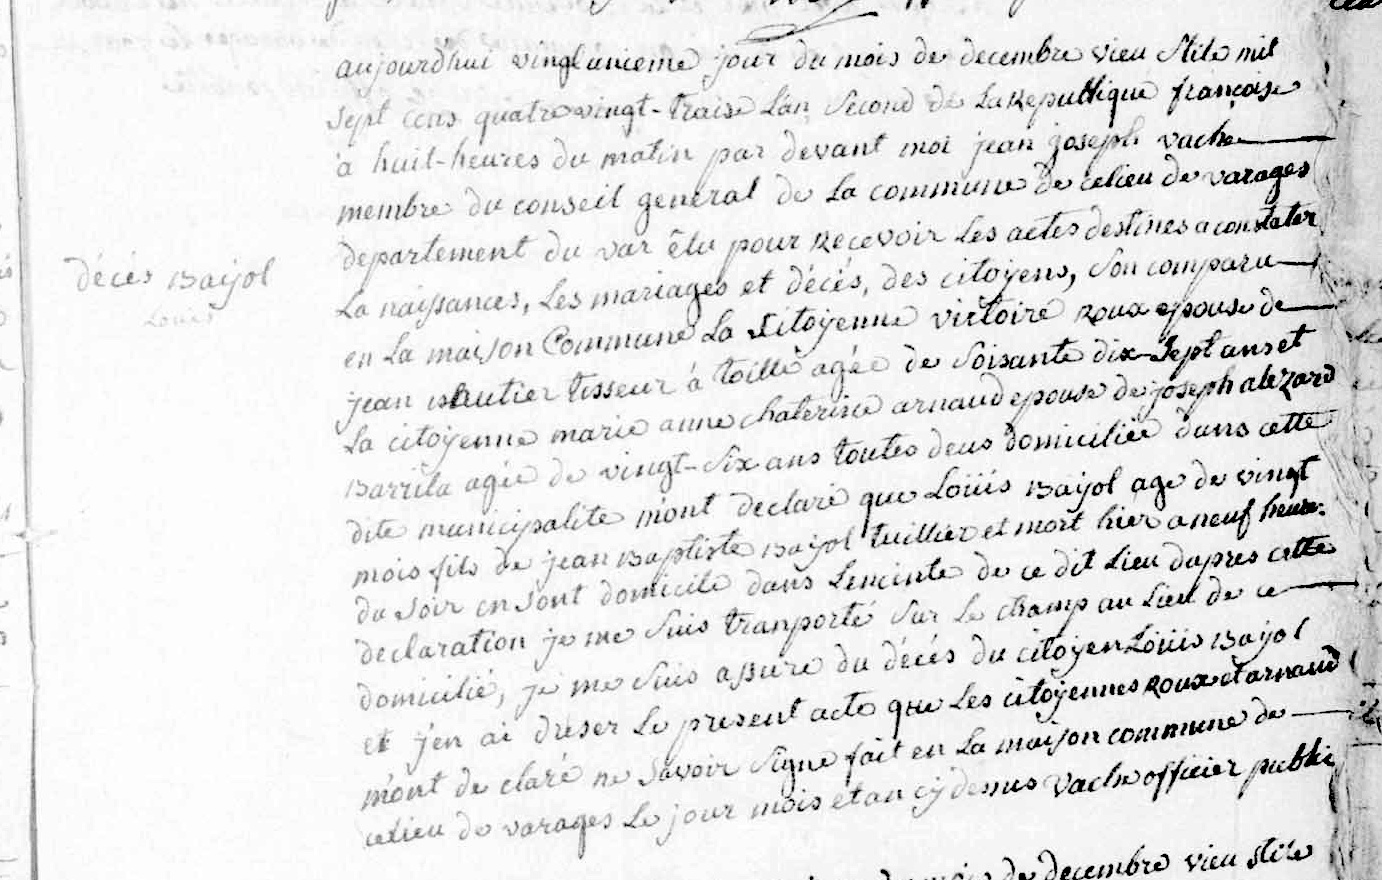 aujourdhui vingtunieme jour du mois de decembre vieu stile mil
sept cens quatrevingt-traise Lan second de La Republique françoise
à huit-heures du matin par devant moi jean joseph vache
membre du conseil general de La commune de celieu de varages
departement du var êlu pour Recevoir Les actes destines a constater
La naissances, Les mariages et décés, des citoyens, son comparu
décés Bayol
Louis
en La maison Commune La Citoyenne victoire Roux epouse de
jean Autier tisseur à toille agée de soisante dix-sept ans et
La citoyenne marie anne chaterine arnaud epouse de joseph alezard
Barrila agée de vingt-six ans toutes deus domiciliée dans cette
dite municipalite m'ont declaré que Loüis Bayol age de vingt
mois fils de jean Baptiste Bayol tuillier et mort hier a neuf heures
du soir en sont domicile dans Lencinte de ce dit Lieu dapres cette
declaration je me suis tranporté sur Le champ au Lieu de ce
domicilié, je me suis assure du décés du citoyen Loüis Bayol
et j'en ai dreser Le present acte que Les citoyennes Roux et arnaud
m'ont de claré ne savoir signe fait en La maison commune de
celieu de varages Le jour mois et an cy dessus vache officier public
de decembre vieu stile